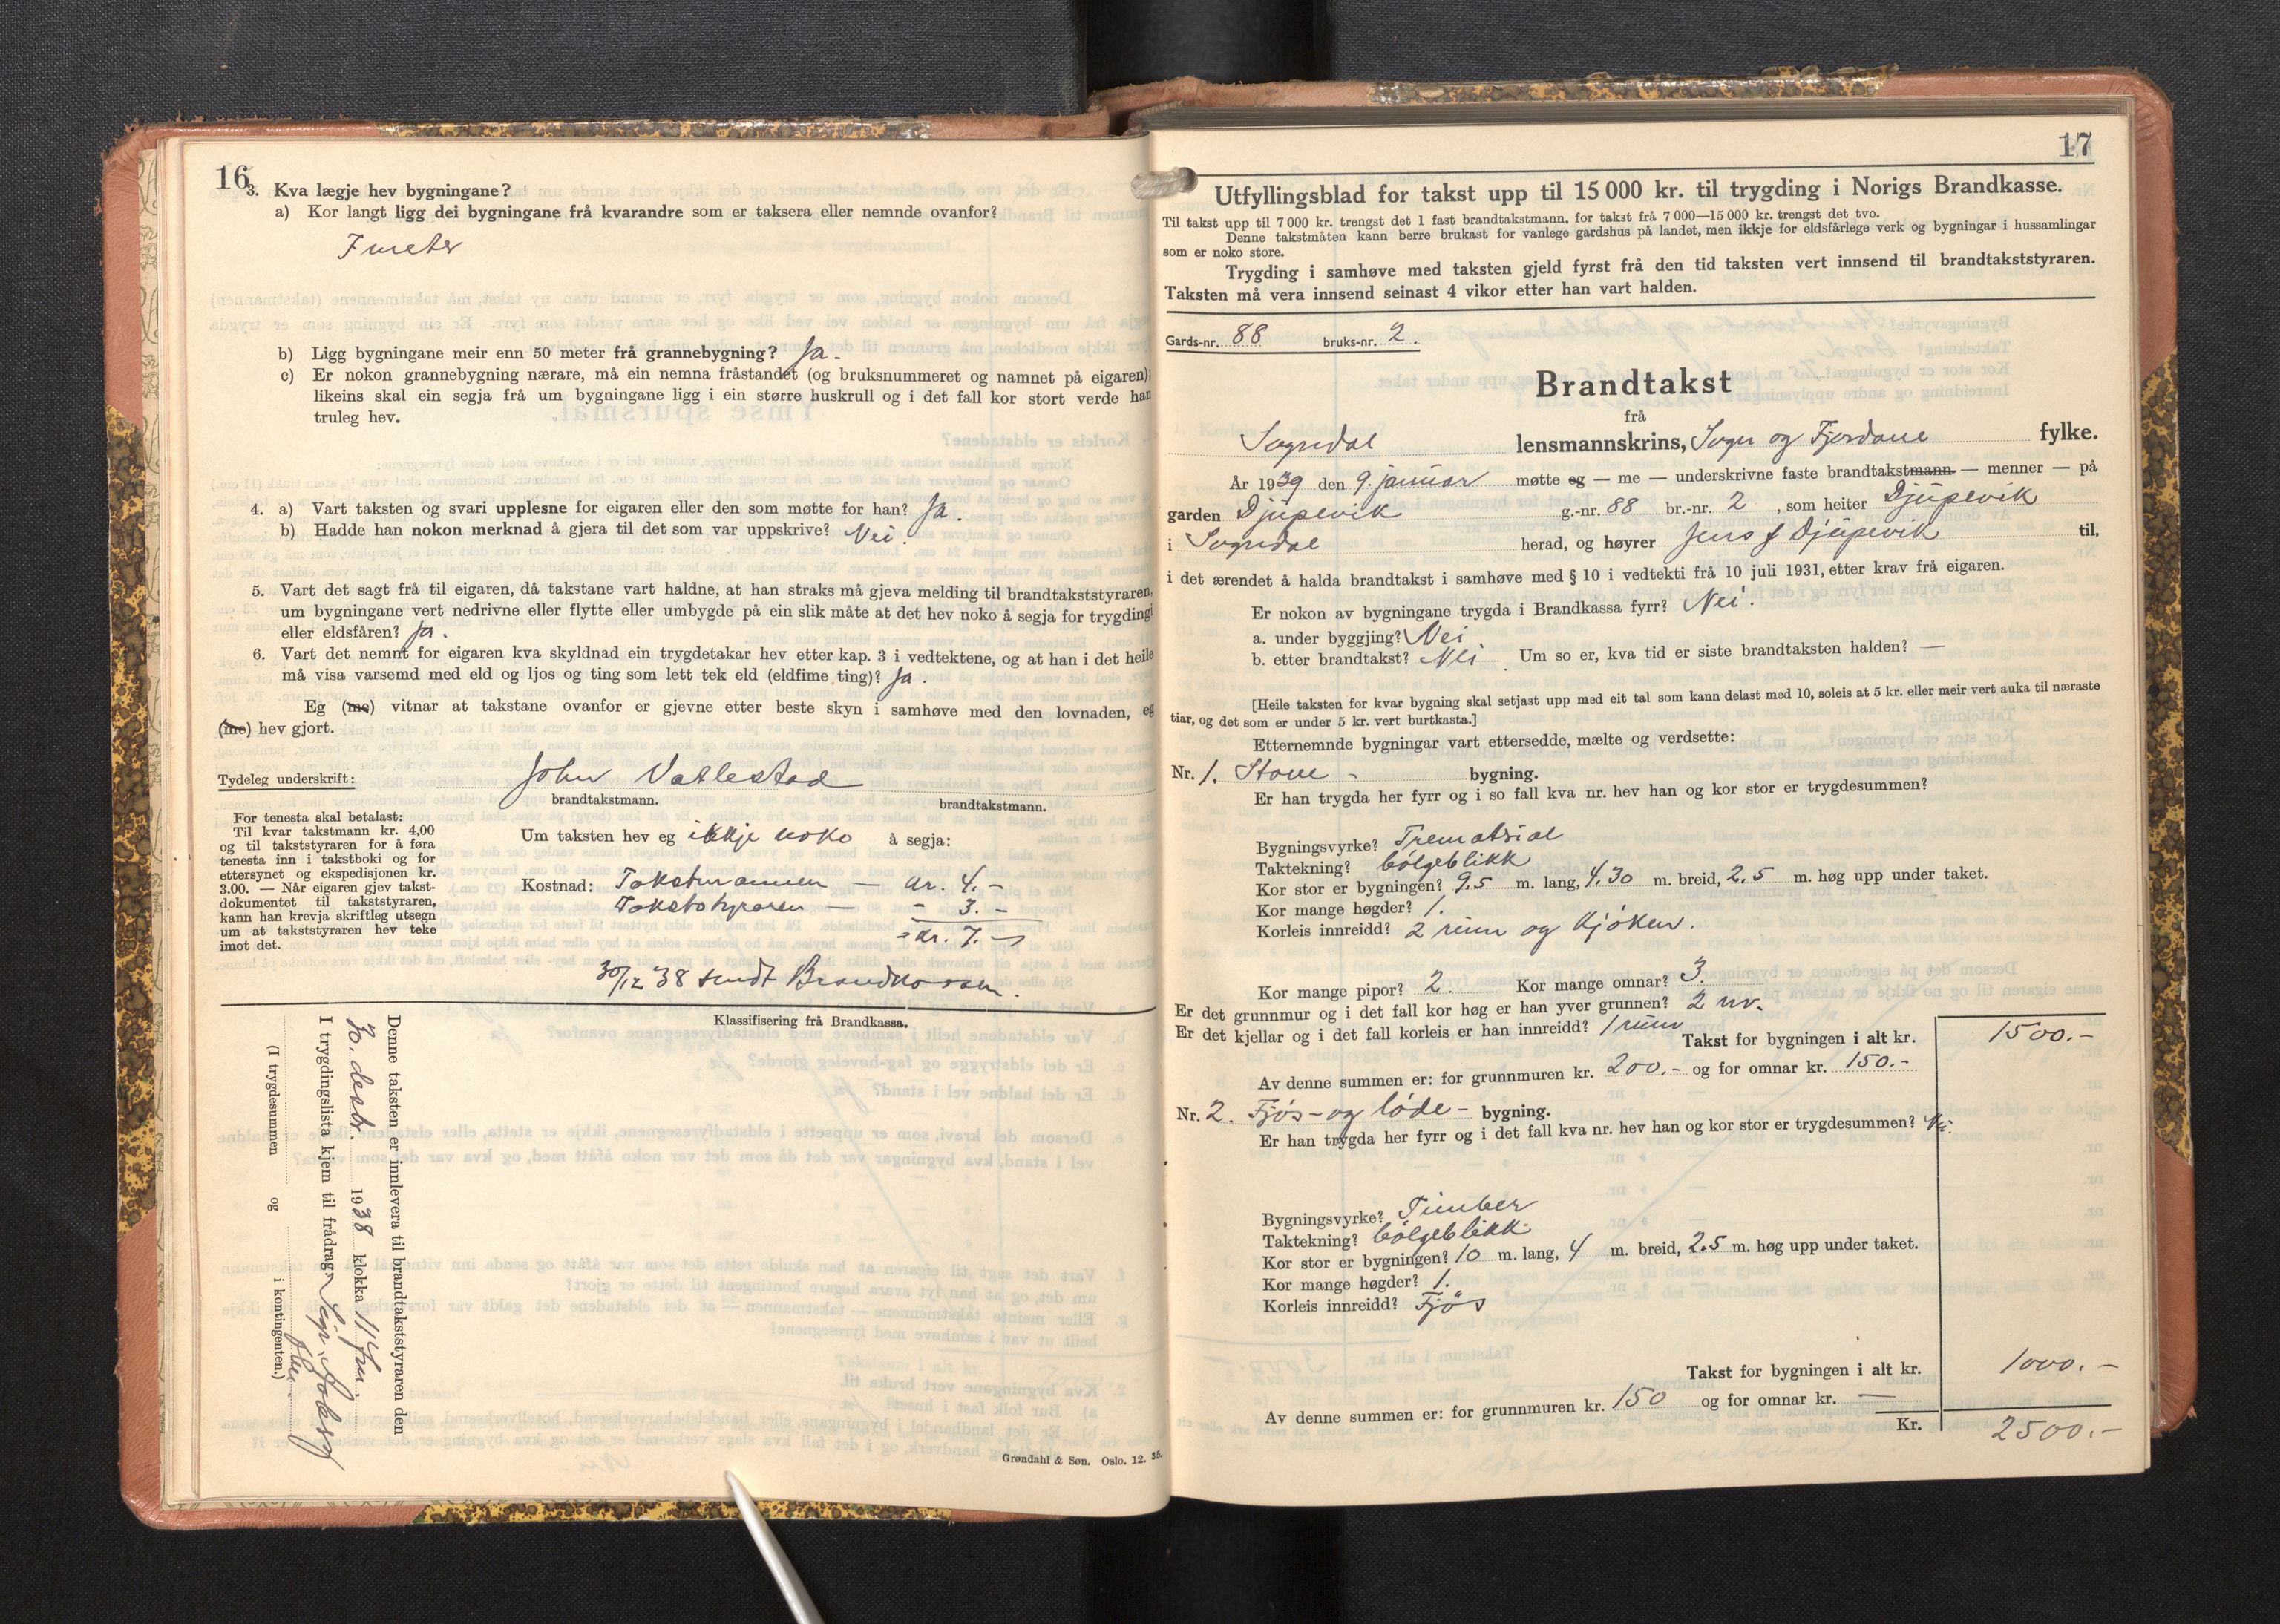 16
3. Kva lægje hev bygningane?
a) Kor langt ligg dei bygningane frå kvarandre som er taksera eller nemnde ovanfor?
7 meter
b) Ligg bygningane meir enn 50 meter frå grannebygning? Ja.
c) Er nokon grannebygning nærare, må ein nemna fråstandet (og bruksnummeret og namnet på eigaren);
likeins skal ein segja frå um bygningane ligg i ein større huskrull og i det fall kor stort verde han
truleg hev.
4. a) Vart taksten og svari upplesne for eigaren eller den som møtte for han? Ja.
b) Hadde han nokon merknad å gjera til det som var uppskrive? Nei.
5. Vart det sagt frå til eigaren, då takstane vart haldne, at han straks må gjeva melding til brandtakststyraren,
um bygningane vert nedrivne eller flytte eller umbygde på ein slik måte at det hev noko å segja for trygding
eller eldsfåren? Ja.
6. Vart det nemnt for eigaren kva skyldnad ein trygdetakar hev etter kap. 3 i vedtektene, og at han i det heile
må visa varsemd med eld og ljos og ting som lett tek eld (eldfime ting)? Ja.
Eg (me) vitnar at takstane ovanfor er gjevne etter beste skyn i samhøve med den lovnaden, eg
(me) hev gjort.
Tydeleg underskrift: John Vatlestad
brandtakstmann. brandtakstmann.
For tenesta skal betalast:
Til kvar takstmann kr. 4,00
og til takststyraren for å føra
tenesta inn i takstboki og for
ettersynet og ekspedisjonen kr.
3.00. — Når eigaren gjev takst-
dokumentet til takststyraren,
kann han krevja skriftleg utsegn
um at takststyraren hev teke
imot det.
Um taksten hev eg ikkje noko å segja:
Kostnad: Takstmannen — kr. 4.-
Takststyraren — - 3.-
= kr. 7.-
30/12 38 sendt Brandkassen.
Klassifisering frå Brandkassa.
Denne taksten er innlevera til brandtakststyraren den
30. desbr. 1938 klokka 11 fm
I trygdingslista kjem til frådrag:
(I trygdesummen og i kontingenten.)
Grøndahl & Søn. Oslo. 12. 35.
17
Utfyllingsblad for takst upp til 15 000 kr. til trygding i Norigs Brandkasse.
Til takst upp til 7 000 kr. trengst det 1 fast brandtakstmann, for takst frå 7 000—15 000 kr. trengst det tvo.
Denne takstmåten kann berre brukast for vanlege gardshus på landet, men ikkje for eldsfårlege verk og bygningar i hussamlingar
som er noko store.
Trygding i samhøve med taksten gjeld fyrst frå den tid taksten vert innsend til brandtakststyraren.
Taksten må vera innsend seinast 4 vikor etter han vart halden.
Gards-nr. 88 bruks-nr. 2.
Brandtakst
frå
Sogndal lensmannskrins, Sogn og Fjordane fylke.
År 1939 den 9. januar møtte eg — me — underskrivne faste brandtakstmann — menner — på
garden Djüpevik g.-nr. 88 br.-nr. 2, som heiter Djüpevik
i Sogndal herad, og høyrer Jens J Djüpevik til,
i det ærendet å halda brandtakst i samhøve med § 10 i vedtekti frå 10 juli 1931, etter krav frå eigaren.
Er nokon av bygningane trygda i Brandkassa fyrr? Nei.
a. under byggjing? Nei
b. etter brandtakst? Nei. Um so er, kva tid er siste brandtaksten halden? —
[Heile taksten for kvar bygning skal setjast upp med eit tal som kann delast med 10, soleis at 5 kr. eller meir vert auka til næraste
tiar, og det som er under 5 kr. vert burtkasta.]
Etternemnde bygningar vart ettersedde, mælte og verdsette:
Nr. 1. Stove - bygning.
Er han trygda her fyrr og i so fall kva nr. hev han og kor stor er trygdesummen?
Bygningsvyrke? Trematrial
Taktekning? bölgeblikk
Kor stor er bygningen? 9.5 m. lang, 4.30 m. breid, 2.5 m. høg upp under taket.
Kor mange høgder? 1.
Korleis innreidd? 2 rüm og kjöken.
Kor mange pipor? 2. Kor mange omnar? 3.
Er det grunnmur og i det fall kor høg er han yver grunnen? 2 m.
Er det kjellar og i det fall korleis er han innreidd? 1 rüm
Takst for bygningen i alt kr. 1500.-
Av denne summen er: for grunnmuren kr. 200.- og for omnar kr. 150.-
Nr. 2. Fjös- og löde- bygning.
Er han trygda her fyrr og i det fall kva nr. hev han og kor stor er trygdesummen? Nei.
Bygningsvyrke? Timber
Taktekning? bölgeblikk.
Kor stor er bygningen? 10 m. lang, 4 m. breid, 2.5 m. høg upp under taket.
Kor mange høgder? 1.
Korleis innreidd? Fjös
Takst for bygningen i alt kr. 1000.-
Av denne summen er: for grunnmuren kr. 150 og for omnar kr. —
Kr. 2500.-